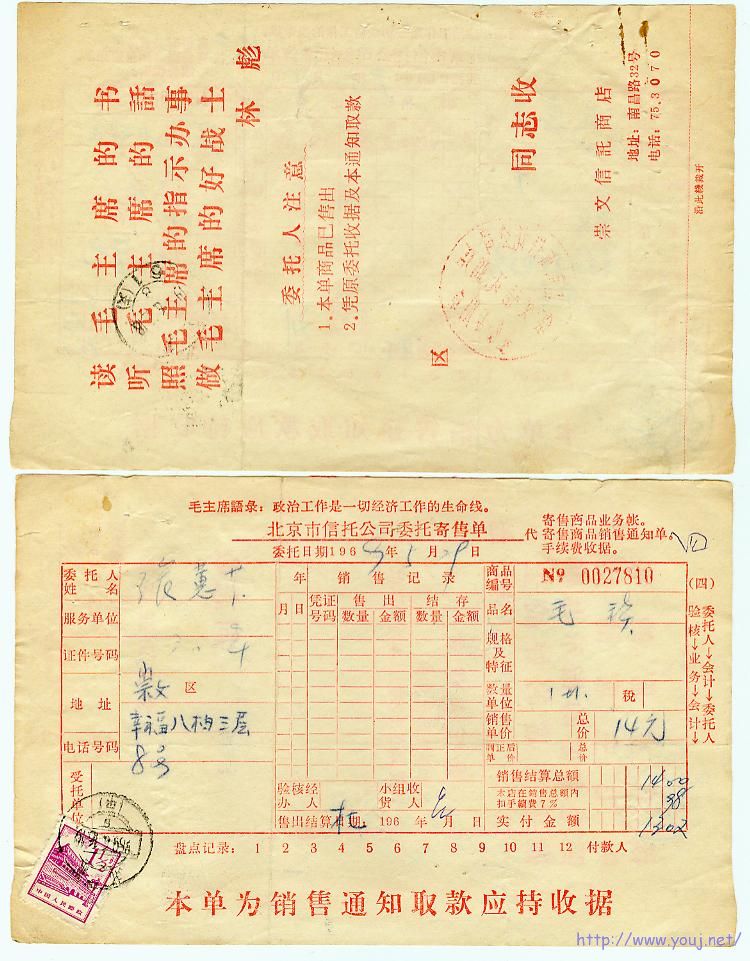 读毛主席的书
听毛主席的話
照毛主席的指示办事
做毛主席的好战士
林彪
委托人注意
1.本单商品已售出
2.凭原委托收据及本通知取款
区
同志收
崇文信託商店
地址:南昌路32号
电话:75.3070
沿此綫裁开
毛主席語录:政治工作是一切经济工作的生命线。
北京市信托公司委托寄售单
代
寄售商品业务帐。
寄售商品销售通知单。
手续费收据。
委托日期1969年5月29日
委托人姓名
张惠
服务单位
证件号码
地址
崇文区
幸福八栋三层
8号
电话号码
受托单位
年
月日
销售记录
凭证号码
售出
数量
金额
结存
数量
金额
商品编号
№ 0027810
品名
毛
规格及特征
数量单位
税
销售单价
总价
14元
調正后单价
总价
销售结算总额
1400
本店在销售总额内扣手續費7%
98
实付金额
1302
验核经办人
小组收货人
售出结算日期:196 年 月 日
(四)
委托人→会计→委托人
验核→业务→会计→
盘点记录:1 2 3 4 5 6 7 8 9 10 11 12 付款人
中国人民邮政
本单为销售通知取款应持收据
http://www.youj.net/